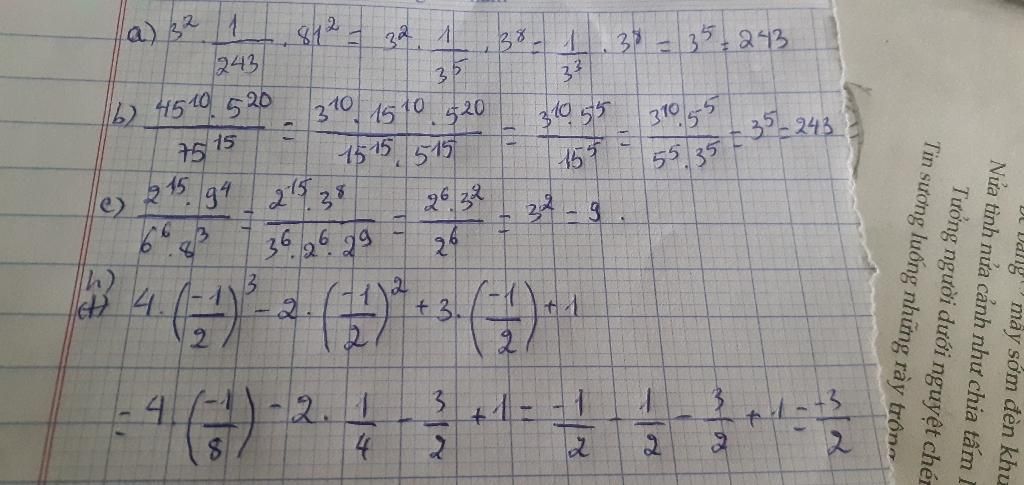 a) 3² · 1/243 · 81² = 3² · 1/3⁵ · 3⁸ = 1/3³ · 3⁸ = 3⁵ = 243
b) 45¹⁰ · 5²⁰ / 75¹⁵ = 3¹⁰ · 15¹⁰ · 5²⁰ / 15¹⁵ · 5¹⁵ = 3¹⁰ · 5⁵ / 15⁵ = 3¹⁰ · 5⁵ / 5⁵ · 3⁵ = 3⁵ = 243
c) 2¹⁵ · 9⁴ / 6⁶ · 8³ = 2¹⁵ · 3⁸ / 3⁶ · 2⁶ · 2⁹ = 2⁶ · 3² / 2⁶ = 3² = 9 .
h)
4 · (-1/2)³ - 2 · (-1/2)² + 3 · (-1/2) + 1
= 4 · (-1/8) - 2 · 1/4 - 3/2 + 1 = -1/2 - 1/2 - 3/2 + 1 = -3/2
mây sớm đèn khu
Nửa tình nửa cảnh như chia tấm l
Tưởng người dưới nguyệt chén
Tin sương luống những rày trông